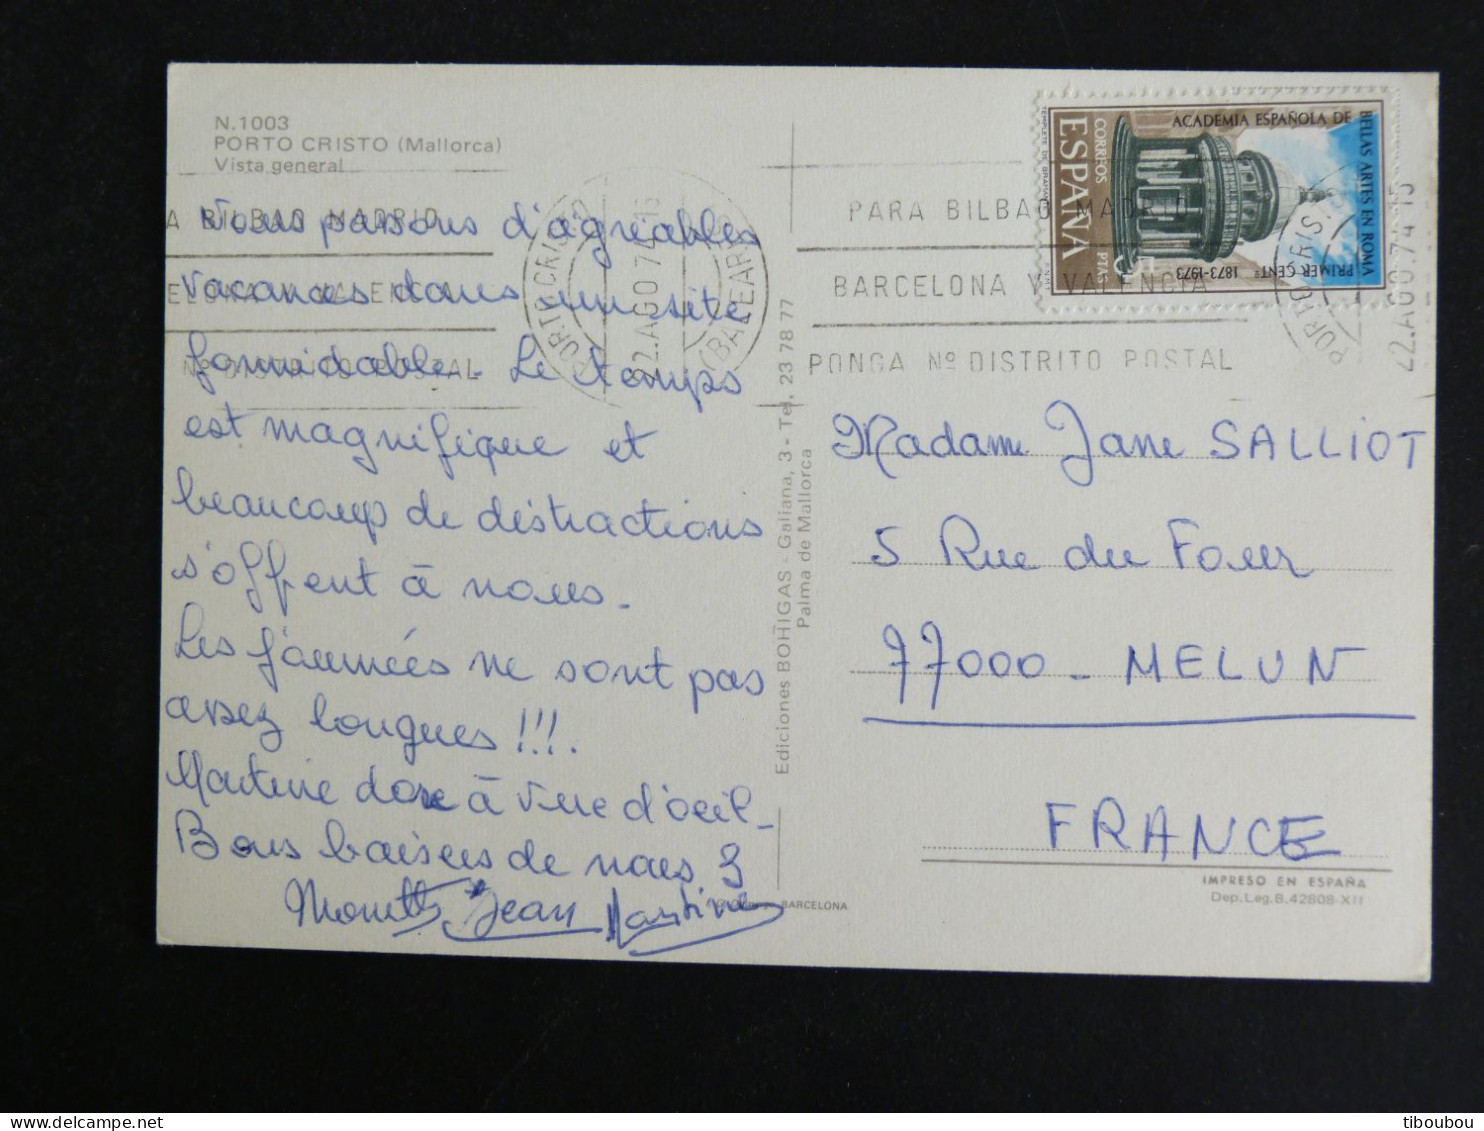 N.1003
PORTO CRISTO (Mallorca)
Vista general
A BILBAO MADRID
Nº DISTRITO POSTAL
PORTO CRISTO
22.AGO.74-15
(BALEARES)
Nous passons d'agréables
vacances dans un site
formidable. Le temps
est magnifique et
beaucoup de distractions
s'offrent à nous.
Les journées ne sont pas
assez longues !!!.
Martine dore à vue d'oeil_
Bons baisers de nous 3
Monette Jean Martine
Ediciones BOHIGAS - Galiana, 3 - Tel. 23 78 77
Palma de Mallorca
BARCELONA
PARA BILBAO MADRID
BARCELONA Y VALENCIA
PONGA Nº DISTRITO POSTAL
ACADEMIA ESPAÑOLA DE
BELLAS ARTES EN ROMA
PRIMER CENTº
1873-1973
CORREOS
ESPAÑA
PTAS
22.AGO.74-15
Madame Jane SALLIOT
5 Rue du Four
77000 - MELUN
FRANCE
IMPRESO EN ESPAÑA
Dep.Leg.B.42608-XII
tiboubou